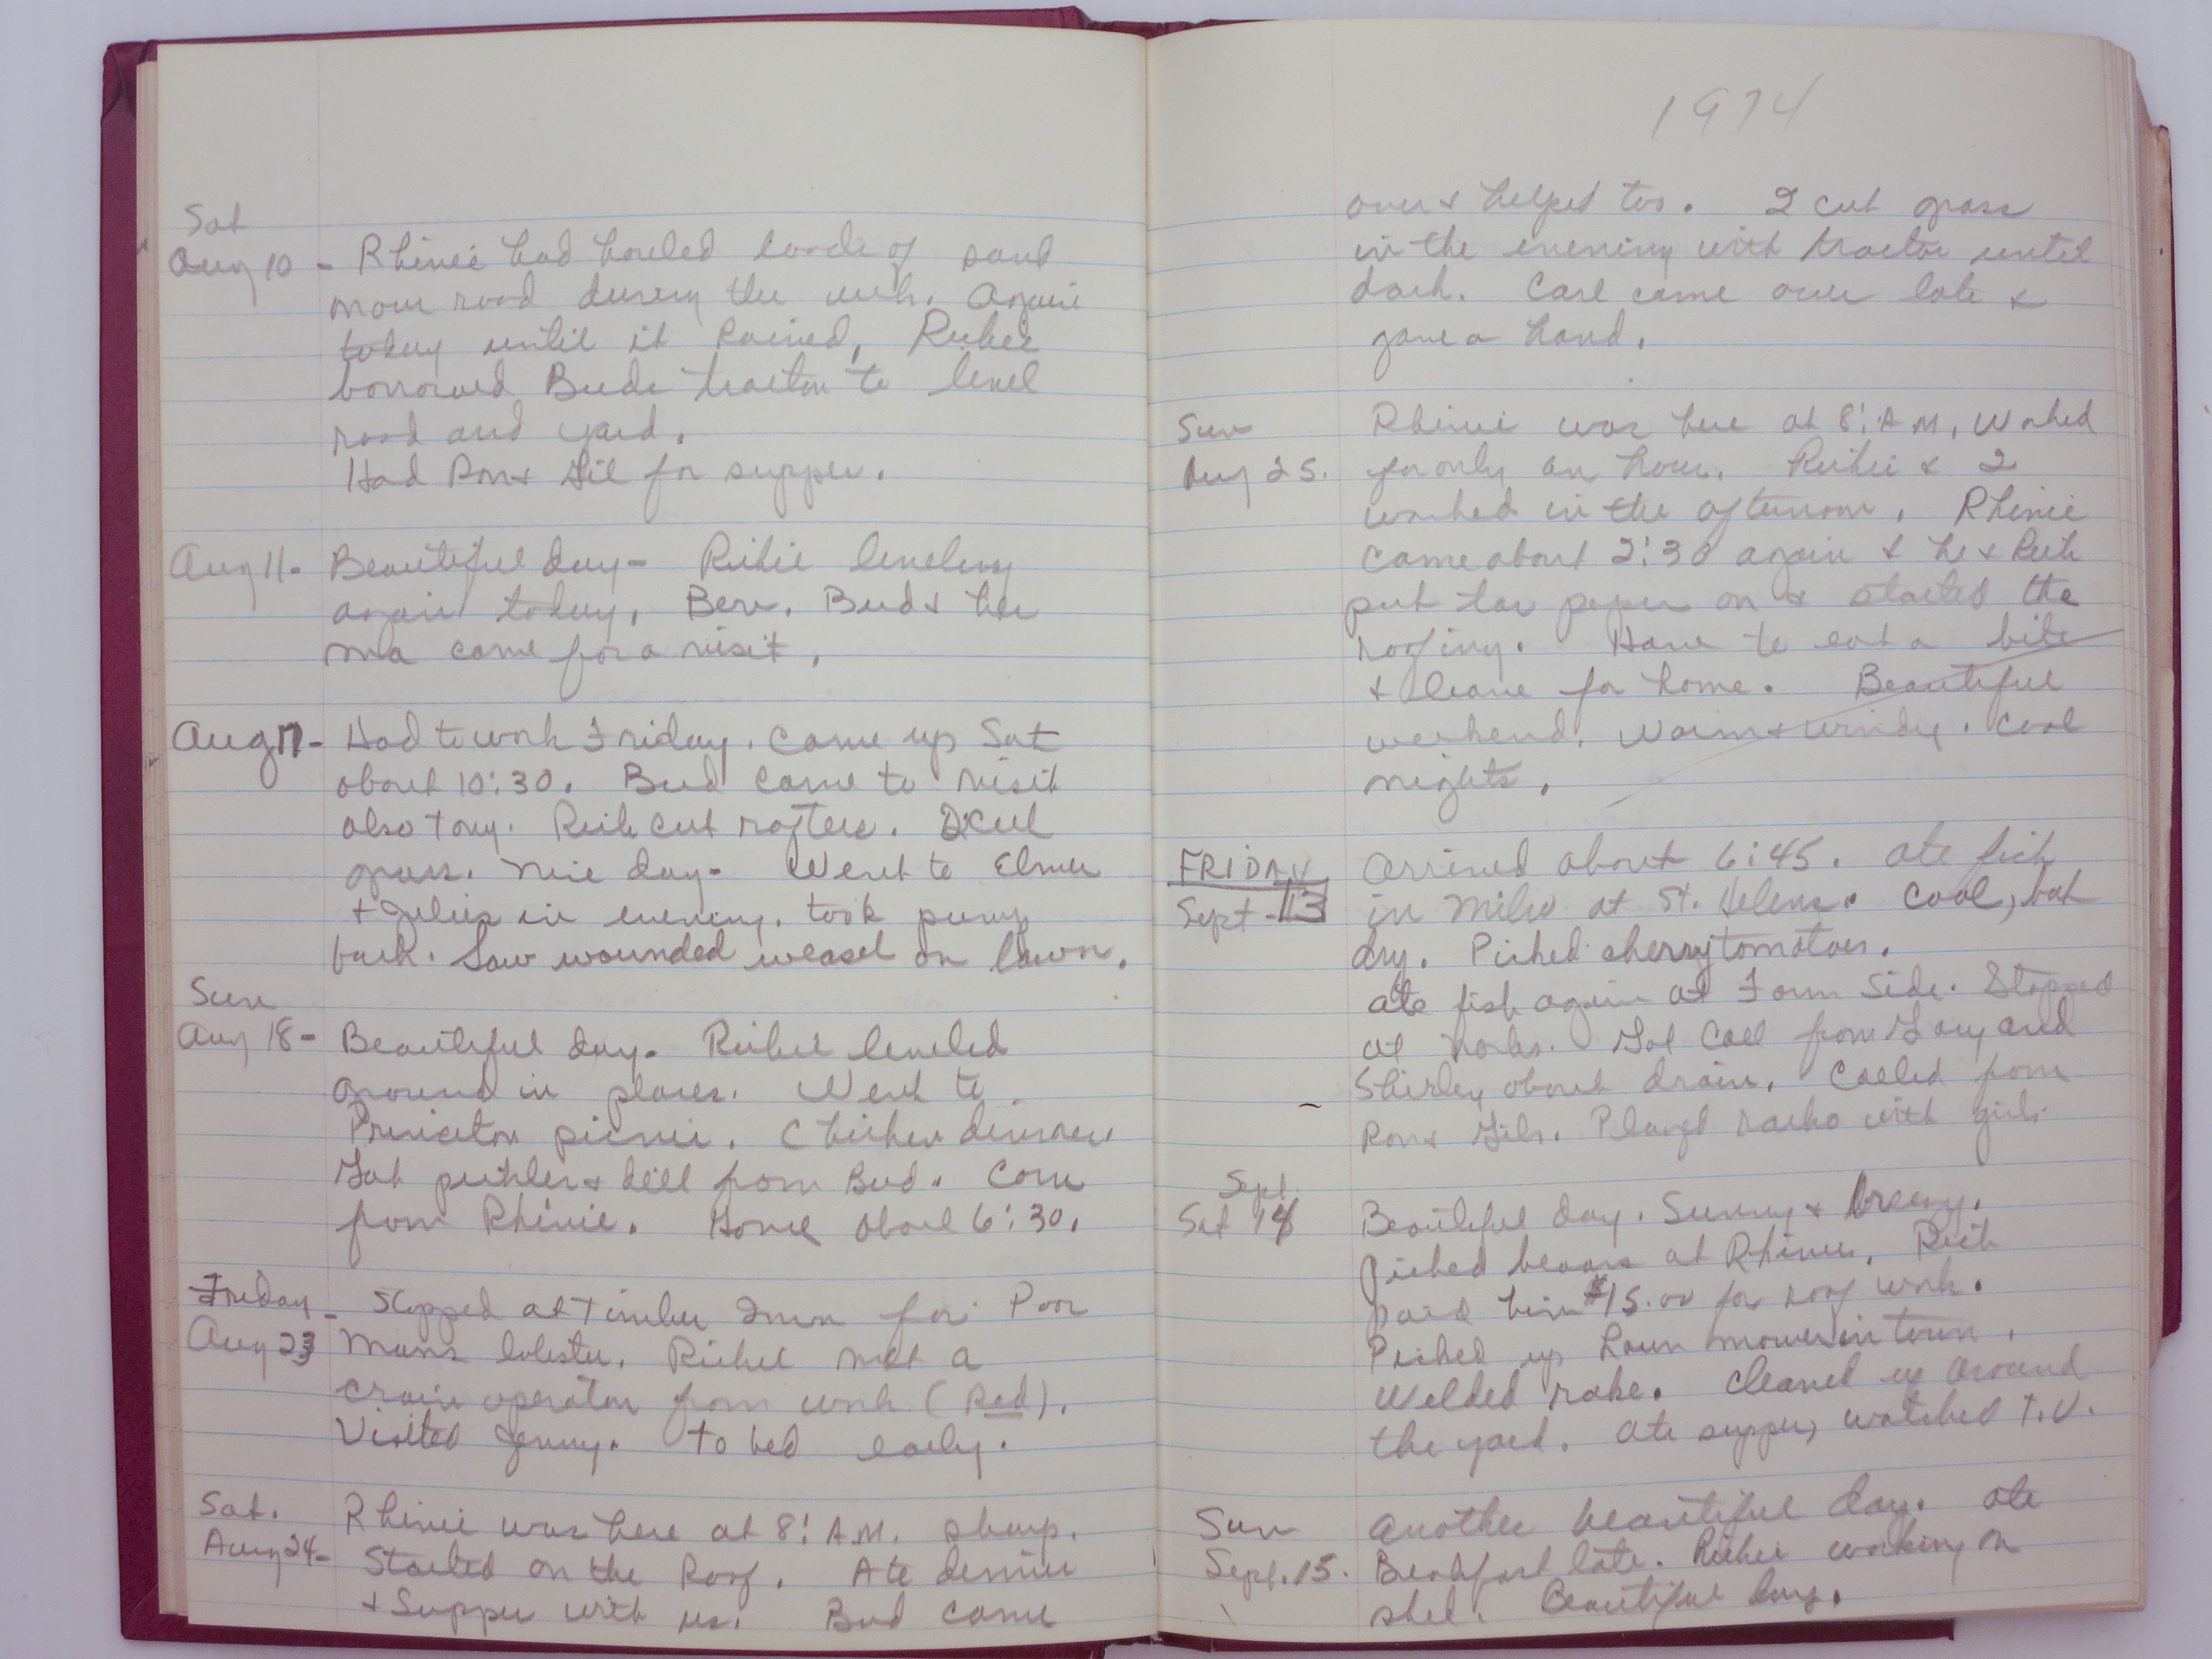 Sat
Aug 10 - Rhinie had hauled loads of sand
on our road during the week. Again
today until it rained, Richie
borrowed Buds tractor to level
road and yard.
Had Ron & Gil for supper.
Aug 11. Beautiful day - Richie leveling
again today. Bev. Bud & her
ma came for a visit.
Aug 17 - Had to work Friday. Came up Sat
about 10:30. Bud came to visit
also Tony. Rich cut rafters. I cut
grass. Nice day - Went to Elmer
& Julies in evening. took pump
back. Saw wounded weasel on lawn.
Sun
Aug 18 - Beautiful day. Richie leveled
ground in places. Went to
Princeton picnic. Chicken dinner
Got pickles & dill from Bud. Corn
from Rhinie. Home about 6:30.
Friday
Aug 23 - Stopped at Timber Inn for Poor
Mans lobster. Richie met a
crain operator from work (Red).
Visited Jenny. To bed early.
Sat.
Aug 24 - Rhinie was here at 8: A.M. sharp.
Started on the Roof. Ate dinner
& Supper with us. Bud came
1974
over & helped too. I cut grass
in the evening with tractor until
dark. Carl came over late &
gave a hand.
Sun
Aug 25. Rhinie was here at 8: A.M. Worked
for only an hour. Richie & I
worked in the afternoon. Rhinie
came about 2:30 again & he & Rich
put tar paper on & started the
roofing. Have to eat a bite
& leave for home. Beautiful
weekend. Warm & windy. Cool
nights.
FRIDAY
Sept - 13 Arrived about 6:45. Ate fish
in Milw at St. Helens. Cool, but
dry. Picked cherry tomatoes.
Ate fish again at Farm Side. Stopped
at Norbs. Got Call from Gary and
Shirley about drain. Called from
Ron & Gils. Played racko with girls
Sept
Sat 14 Beautiful day. Sunny & breezy.
Picked beans at Rhinies. Rich
paid him $15.00 for roof work.
Picked up lawn mower in town.
Welded rake. Cleaned up around
the yard. Ate supper, watched T.V.
Sun
Sept. 15. Another beautiful day. Ate
Breakfast late. Richie working on
shed. Beautiful day.